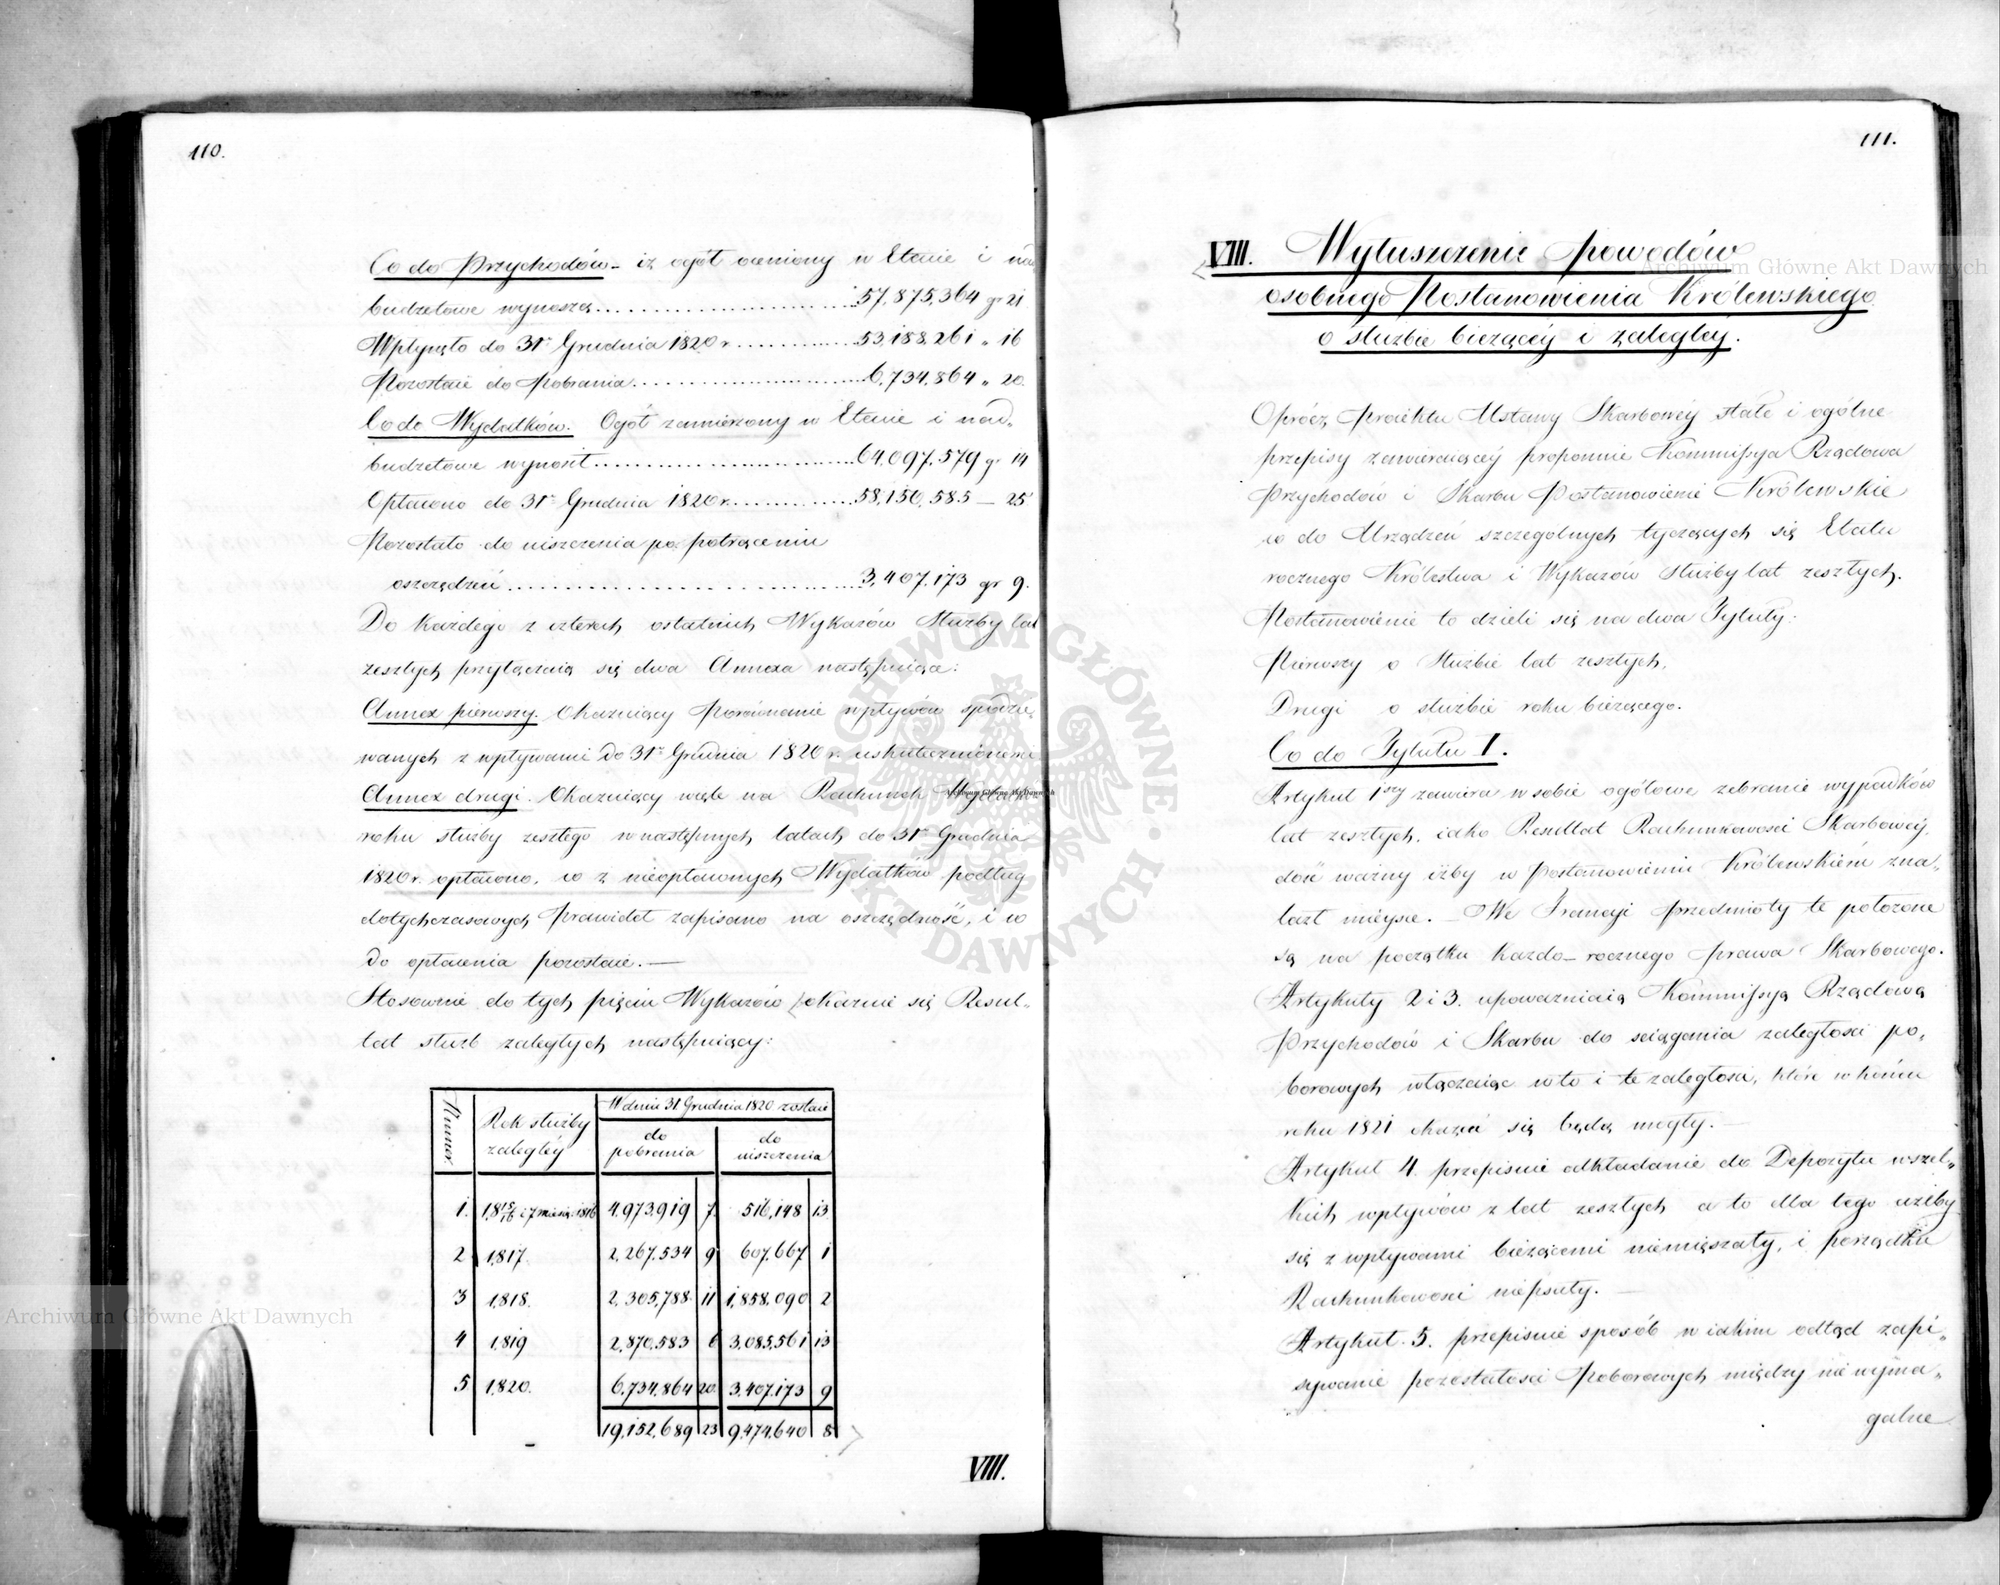 110.
Co do Przychodów – iż ogół oceniony w Etacie i nad
budżetowe wynoszą .......... 57,875,364 gr 21
Wpłynęło do 31º Grudnia 1820 r. .......... 53,188,261 „ 16
Pozostaie do Pobrania .......... 6,734,864 „ 20
Co do Wydatków. Ogół zamierzony w Etacie i nad„
budżetowe wynosił .......... 64,097,579 gr 14
Opłacono do 31º Grudnia 1820 r. .......... 58,150,585 — 25
Pozostało do uiszczenia po potrąceniu
oszczędzeń .......... 3,407,173 gr 9.
Do każdego z czterech ostatnich Wykazów Służby lat
zeszłych przyłączaią się dwa Annexa następuiące:
Annex pierwszy. Okazuiący Porównanie wpływów spodzie„
wanych z wpływami do 31º Grudnia 1820 r. uskutecznionemi
Annex drugi. Okazuiący wiele na Rachunek Wydatków
roku służby zeszłego w następnych latach do 31º Grudnia
1820 r. opłacono, co z nieopłaconych Wydatków podług
dotychczasowych prawideł zapisano na oszczędność, i co
do opłacenia pozostaie. —
Stosownie do tych pięciu Wykazów okazuie się Resul„
tat służb zaległych następuiący:
Numer
Rok służby
zaległéy
W dniu 31 Grudnia 1820 zostaie
do
pobrania
do
uiszczenia
1. 18 15/16 i 7 miesię: 1816 4,973,919 7 516,148 13
2 1817. 2,267,534 9 607,667 1
3 1818. 2,305,788 11 1,858,090 2
4 1819 2,870,583 6 3,085,561 13
5 1820. 6,734,864 20 3,407,173 9
19,152,689 23 9,474,640 8
VIII.
111.
VIII. Wyłuszczenie powodów
osobnego Postanowienia Królewskiego
o służbie bieżącéy i zaległéy.
Oprócz Proiektu Ustawy Skarbowéy stałe i ogólne
przepisy zawieraiącéy proponuie Kommissya Rządowa
Przychodów i Skarbu Postanowienie Królewskie
co do Urządzeń szczególnych tyczących się Etatu
rocznego Królestwa i Wykazów służby lat zeszłych.
Postanowienie to dzieli się na dwa Tytuły:
Pierwszy o służbie lat zeszłych,
Drugi o służbie roku bieżącego.
Co do Tytułu I.
Artykuł 1szy zawiera w sobie ogółowe zebranie wypadków
lat zeszłych, iako Resultat Rachunkowości Skarbowéy,
dość ważny iżby w Postanowieniu Królewskiem zna„
lazł mieysce. — We Francyi przedmioty te położone
są na początku każdo-rocznego prawa Skarbowego.
Artykuły 2 i 3. upoważniaią Kommissyą Rządową
Przychodów i Skarbu do ściągania zaległości po„
borowych włączaiąc w to i te zaległości, które w końcu
roku 1821 okazać się będą mogły. —
Artykuł 4. przepisuie odkładanie do Depozytu wszel„
kich wpływów z lat zeszłych a to dla tego ażeby
się z wpływami bieżącemi niemięszały, i porządku
Rachunkowości niepsuły. —
Artykuł 5. przepisuie sposób w iakim odtąd zapi„
sywanie pozostałości Poborowych między niewyma„
galne
Archiwum Główne Akt Dawnych
Archiwum Główne Akt Dawnych
Archiwum Główne Akt Dawnych
ARCHIWUM GŁÓWNE AKT DAWNYCH